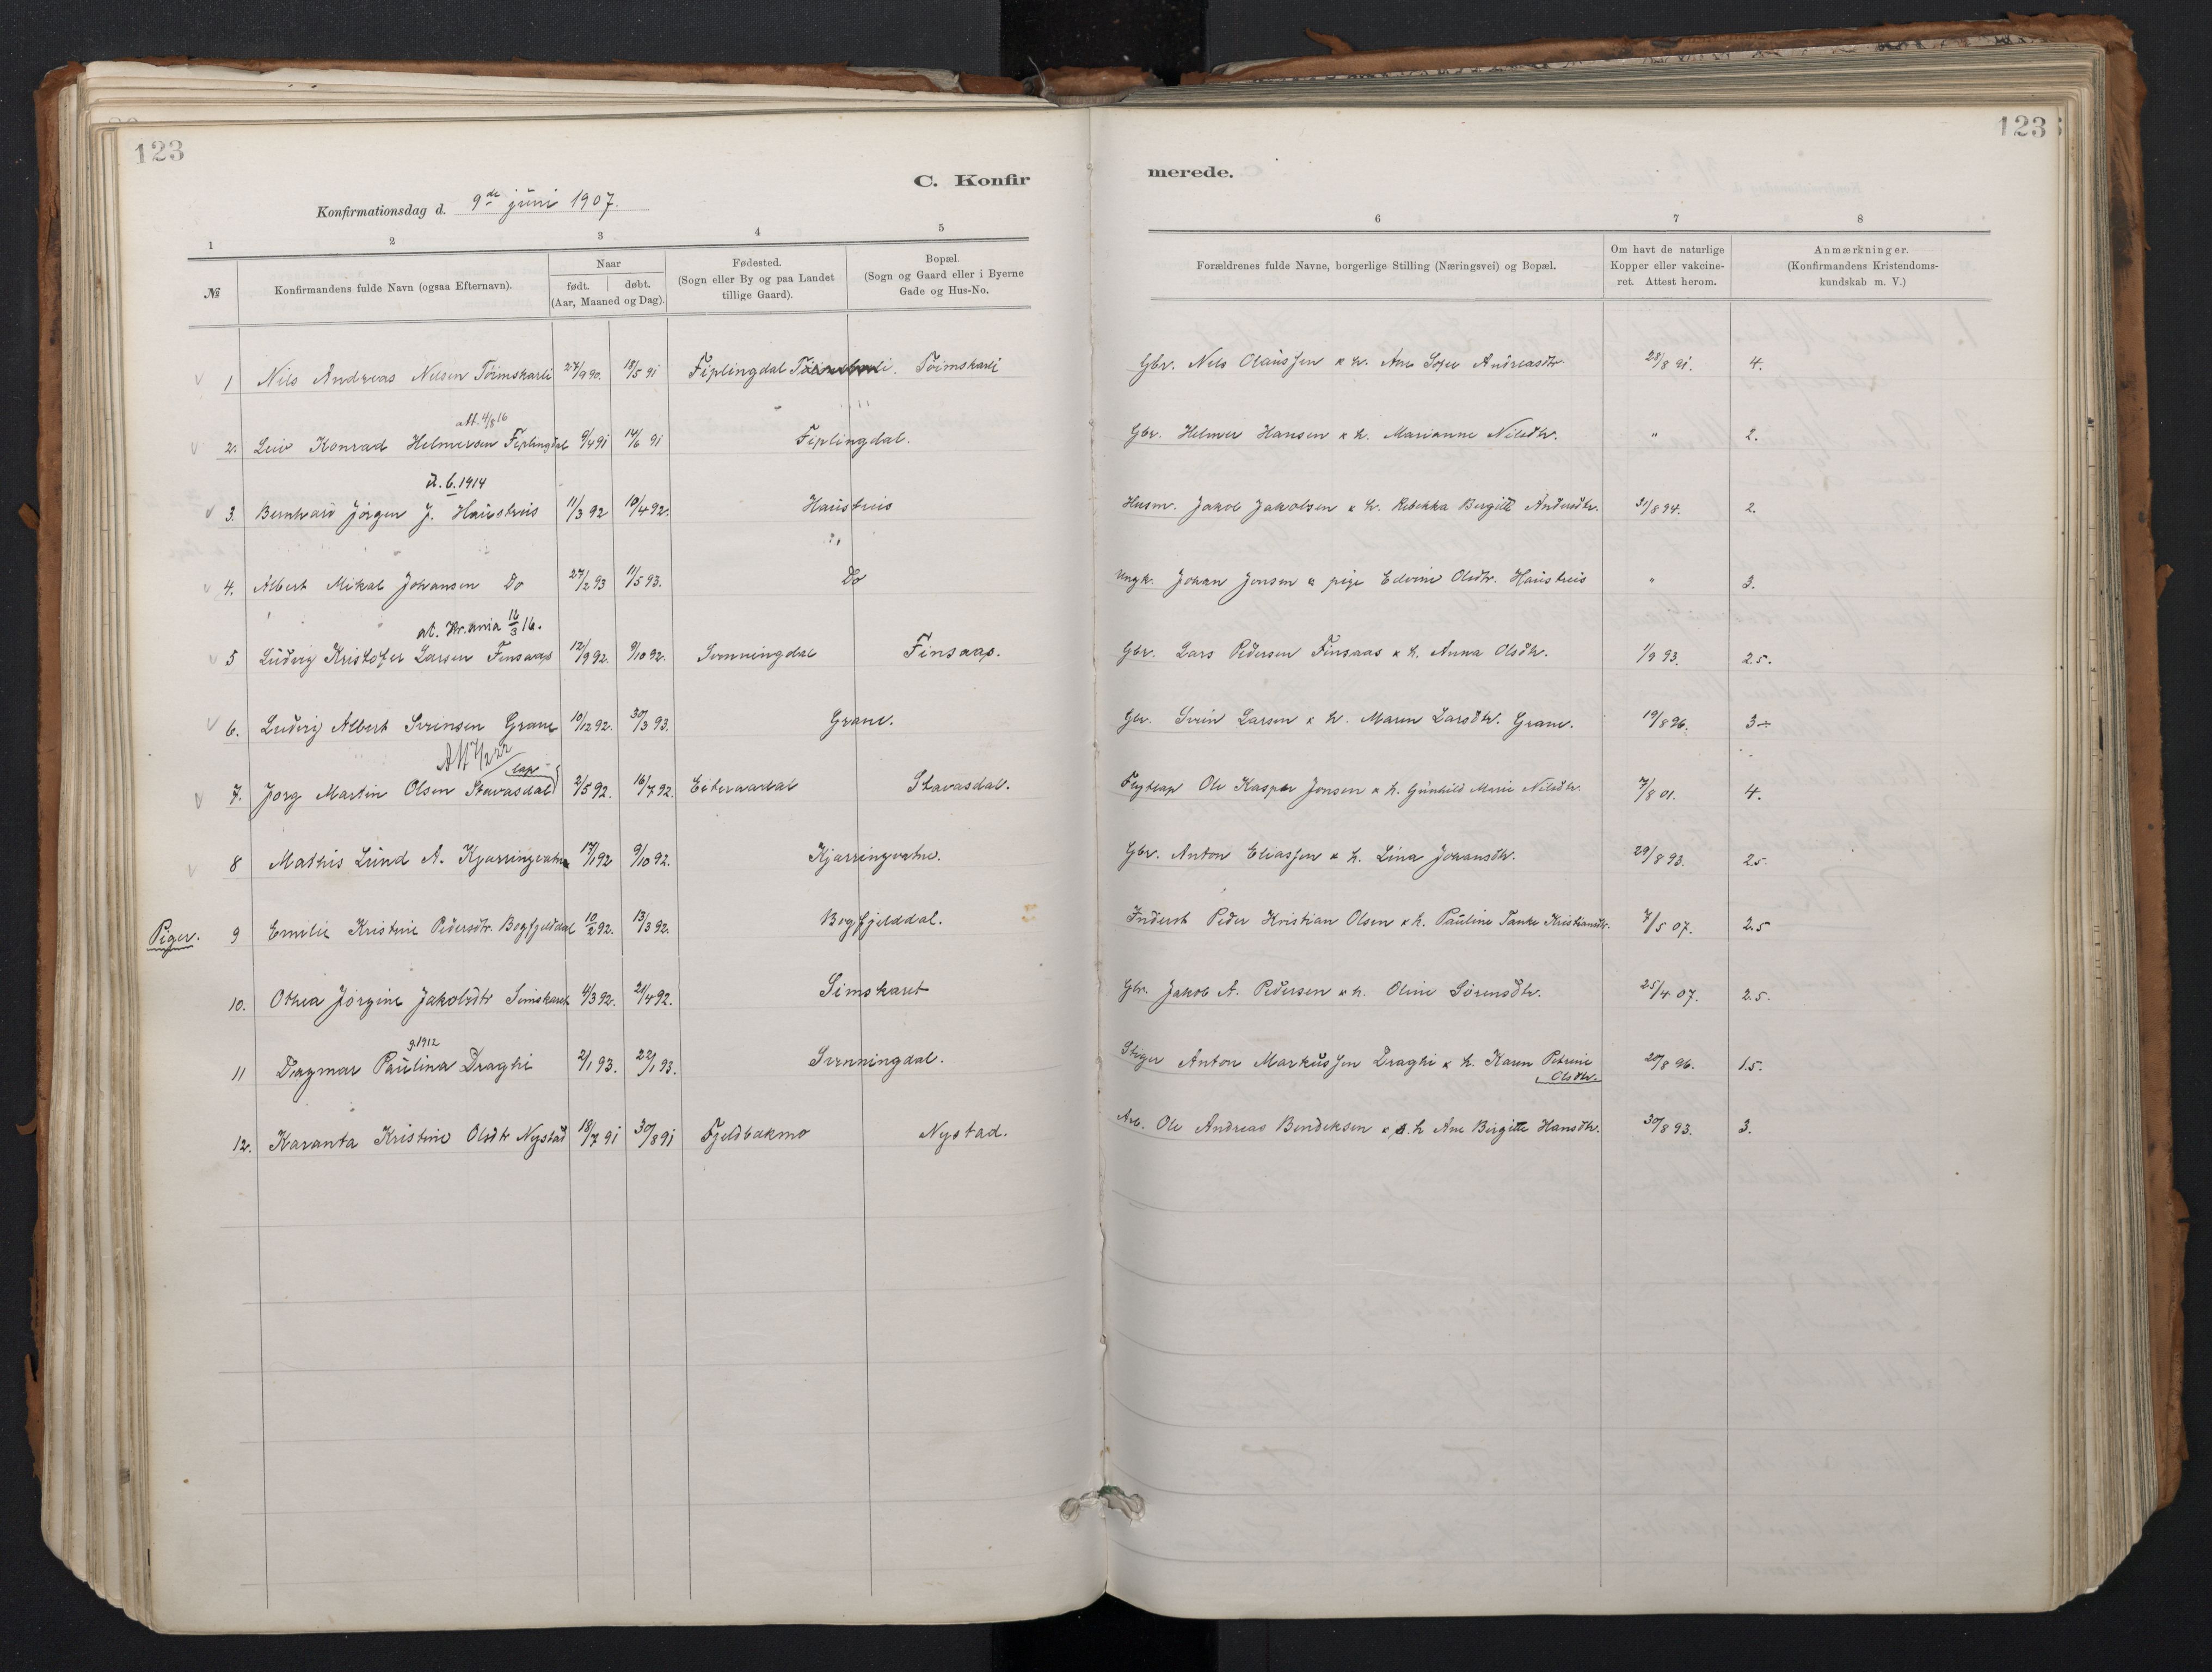 123
C. Konfir
Konfirmationsdag d. 9de juni 1907.
1 2 3 4 5
№ Konfirmandens fulde Navn (ogsaa Efternavn). Naar født. døbt. (Aar, Maaned og Dag). Fødested. (Sogn eller By og paa Landet tillige Gaard). Bopæl. (Sogn og Gaard eller i Byerne Gade og Hus-No.
1 Nils Andreas Nilsen Töimskarli 27/9 90. 18/5 91 Fiplingdal Töimskarli
att. 4/8 16
2. Leiv Konrad Helmersen Fiplingdal 9/4 91 14/6 91 Fiplingdal.
u. 6. 1914
3. Bernhard Jörgen J. Haustreis 11/3 92 10/4 92. Haustreis
4. Albert Mikal Johansen Do 27/2 93 11/5 93. Do
at. Kr.ania 16/3 16.
5 Ludvig Kristofer Larsen Finsaas 12/9 92. 9/10 92. Svenningdal Finsaas.
6. Ludvig Albert Sveinsen Grane 10/12 92. 30/3 93. Grane.
Att 7/2 22
lap
7. Jorg Martin Olsen Stavasdal 2/5 92. 16/7 92. Eiteraadal Stavasdal.
8 Mathis Lund A. Kjærringvatne 17/1 92 9/10 92. Kjærringvatne.
Piger. 9 Emilie Kristine Pedersdtr. Bogfjelddal 10/2 92. 13/3 92. Bogfjelddal.
10. Othea Jörgine Jakobsdtr Simskaret 4/3 92. 21/4 92. Simskaret
g. 1912
11 Dagmar Paulina Draghi 2/1 93. 22/1 93. Svenningdal.
12. Karanta Kristine Olsdtr Nystad 18/7 91 30/8 91 Fjeldbakmo Nystad.
123
merede.
6 7 8
Forældrenes fulde Navne, borgerlige Stilling (Næringsvei) og Bopæl. Om havt de naturlige Kopper eller vakcineret. Attest herom. Anmærkninger. (Konfirmandens Kristendomskundskab m. V.)
Gbr. Nils Olaussen & h. Ane Sofie Andreasdtr. 28/8 91. 4.
Gbr. Helmer Hansen & h. Marianne Nilsdtr. " 2.
Husm. Jakob Jakobsen & h. Rebekka Birgitte Andersdtr. 31/8 94. 2.
Ungk. Johan Jensen & pige Edvine Olsdtr. Haustreis " 3.
Gbr. Lars Pedersen Finsaas & h. Anna Olsdtr. 1/9 93. 2.5.
Gbr. Svein Larsen & h. Maren Larsdtr. Grane. 19/8 96. 3÷
Flytlap Ole Kasper Jonsen & h. Gunhild Marie Nilsdtr. 7/8 01. 4.
Gbr. Anton Eliassen & h. Lina Johansdtr. 29/8 93. 2.5.
Inderst Peder Kristian Olsen & h. Pauline Tanke Kristiansdtr. 7/5 07. 2.5
Gbr. Jakob A. Pedersen & h. Oline Sörensdtr. 25/4 07. 2.5.
Stiger Anton Markussen Draghi & h. Karen Petrine Olsdtr. 20/8 96. 1.5.
Arb. Ole Andreas Bendiksen & h Ane Birgitte Hansdtr. 30/8 93. 3.